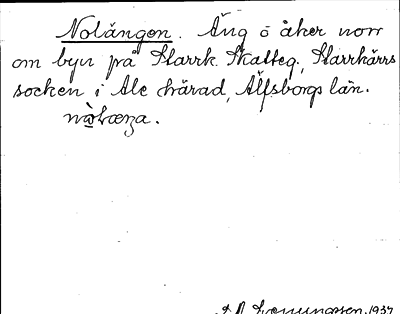 Nolängen. Äng o åker norr
om byn på Starrk. Skatteg., Starrkärrs
socken i Ale härad, Älfsborgs län.
1937